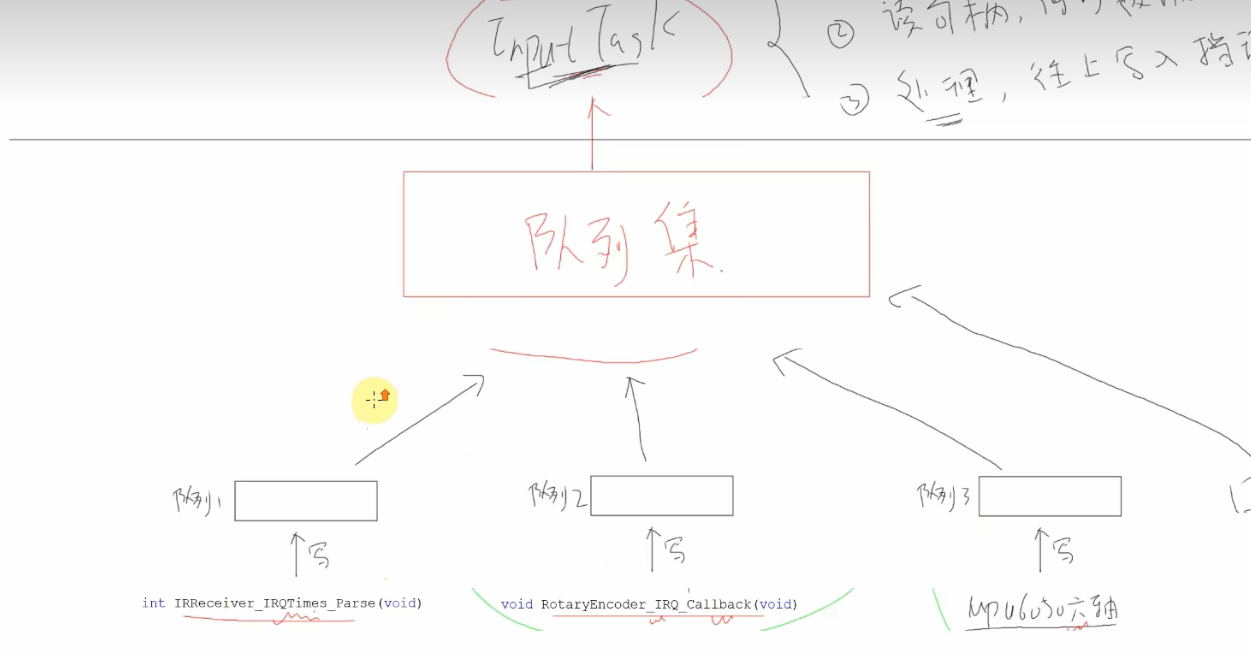 Input Task
② 读句柄,
③ 处理, 往上写入挡
队列集.
队列1
队列2
队列3
写
写
写
int IRReceiver_IRQTimes_Parse(void)
void RotaryEncoder_IRQ_Callback(void)
MPU6050六轴